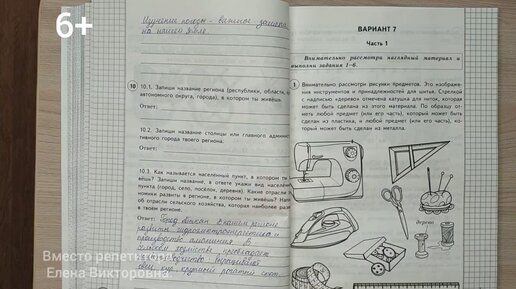 6+
Изучение погоды - важное
на нашей Земле.
10
10.1. Запиши название региона (республики, области,
автономного округа, города), в котором ты живёшь.
Ответ:
10.2. Запиши название столицы или главного админис
тивного города твоего региона.
Ответ:
10.3. Как называется населённый пункт, в котором ты
вёшь? Запиши название, в ответе укажи вид населён
пункта (город, село, посёлок, деревня). Какие отрасли
номики развиты в регионе, в котором ты живёшь?
об отраслях сельского хозяйства, которые наиболее разв
в твоём регионе.
Ответ: Город Абакан. В нашем регионе
развиты гидроэлектроэнергетика и
производство алюминия. В
сельском хозяйстве
выращивают
крупный рогатый скот.
ВАРИАНТ 7
Часть 1
Внимательно рассмотри наглядный материал и
выполни задания 1–6.
1
Внимательно рассмотри рисунки предметов. Это изображе-
ния инструментов и принадлежностей для шитья. Стрелкой
с надписью «дерево» отмечена катушка для ниток, которая
может быть сделана из этого материала. По образцу от-
меть любой предмет (или его часть), который может быть
сделан из пластика, и любой предмет (или его часть), ко-
торый может быть сделан из металла.
дерево
Вместо репетитора
Елена Викторовна